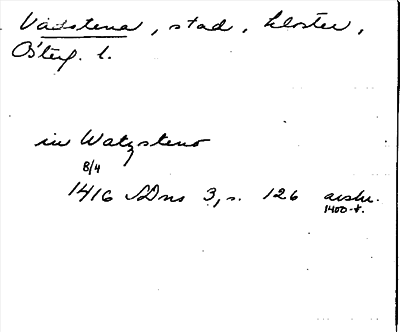 Vadstena, stad, kloster,
Österg. l.
in Watzsteno
8/4
1416 SDns 3, s. 126 avskr.
1400-t.